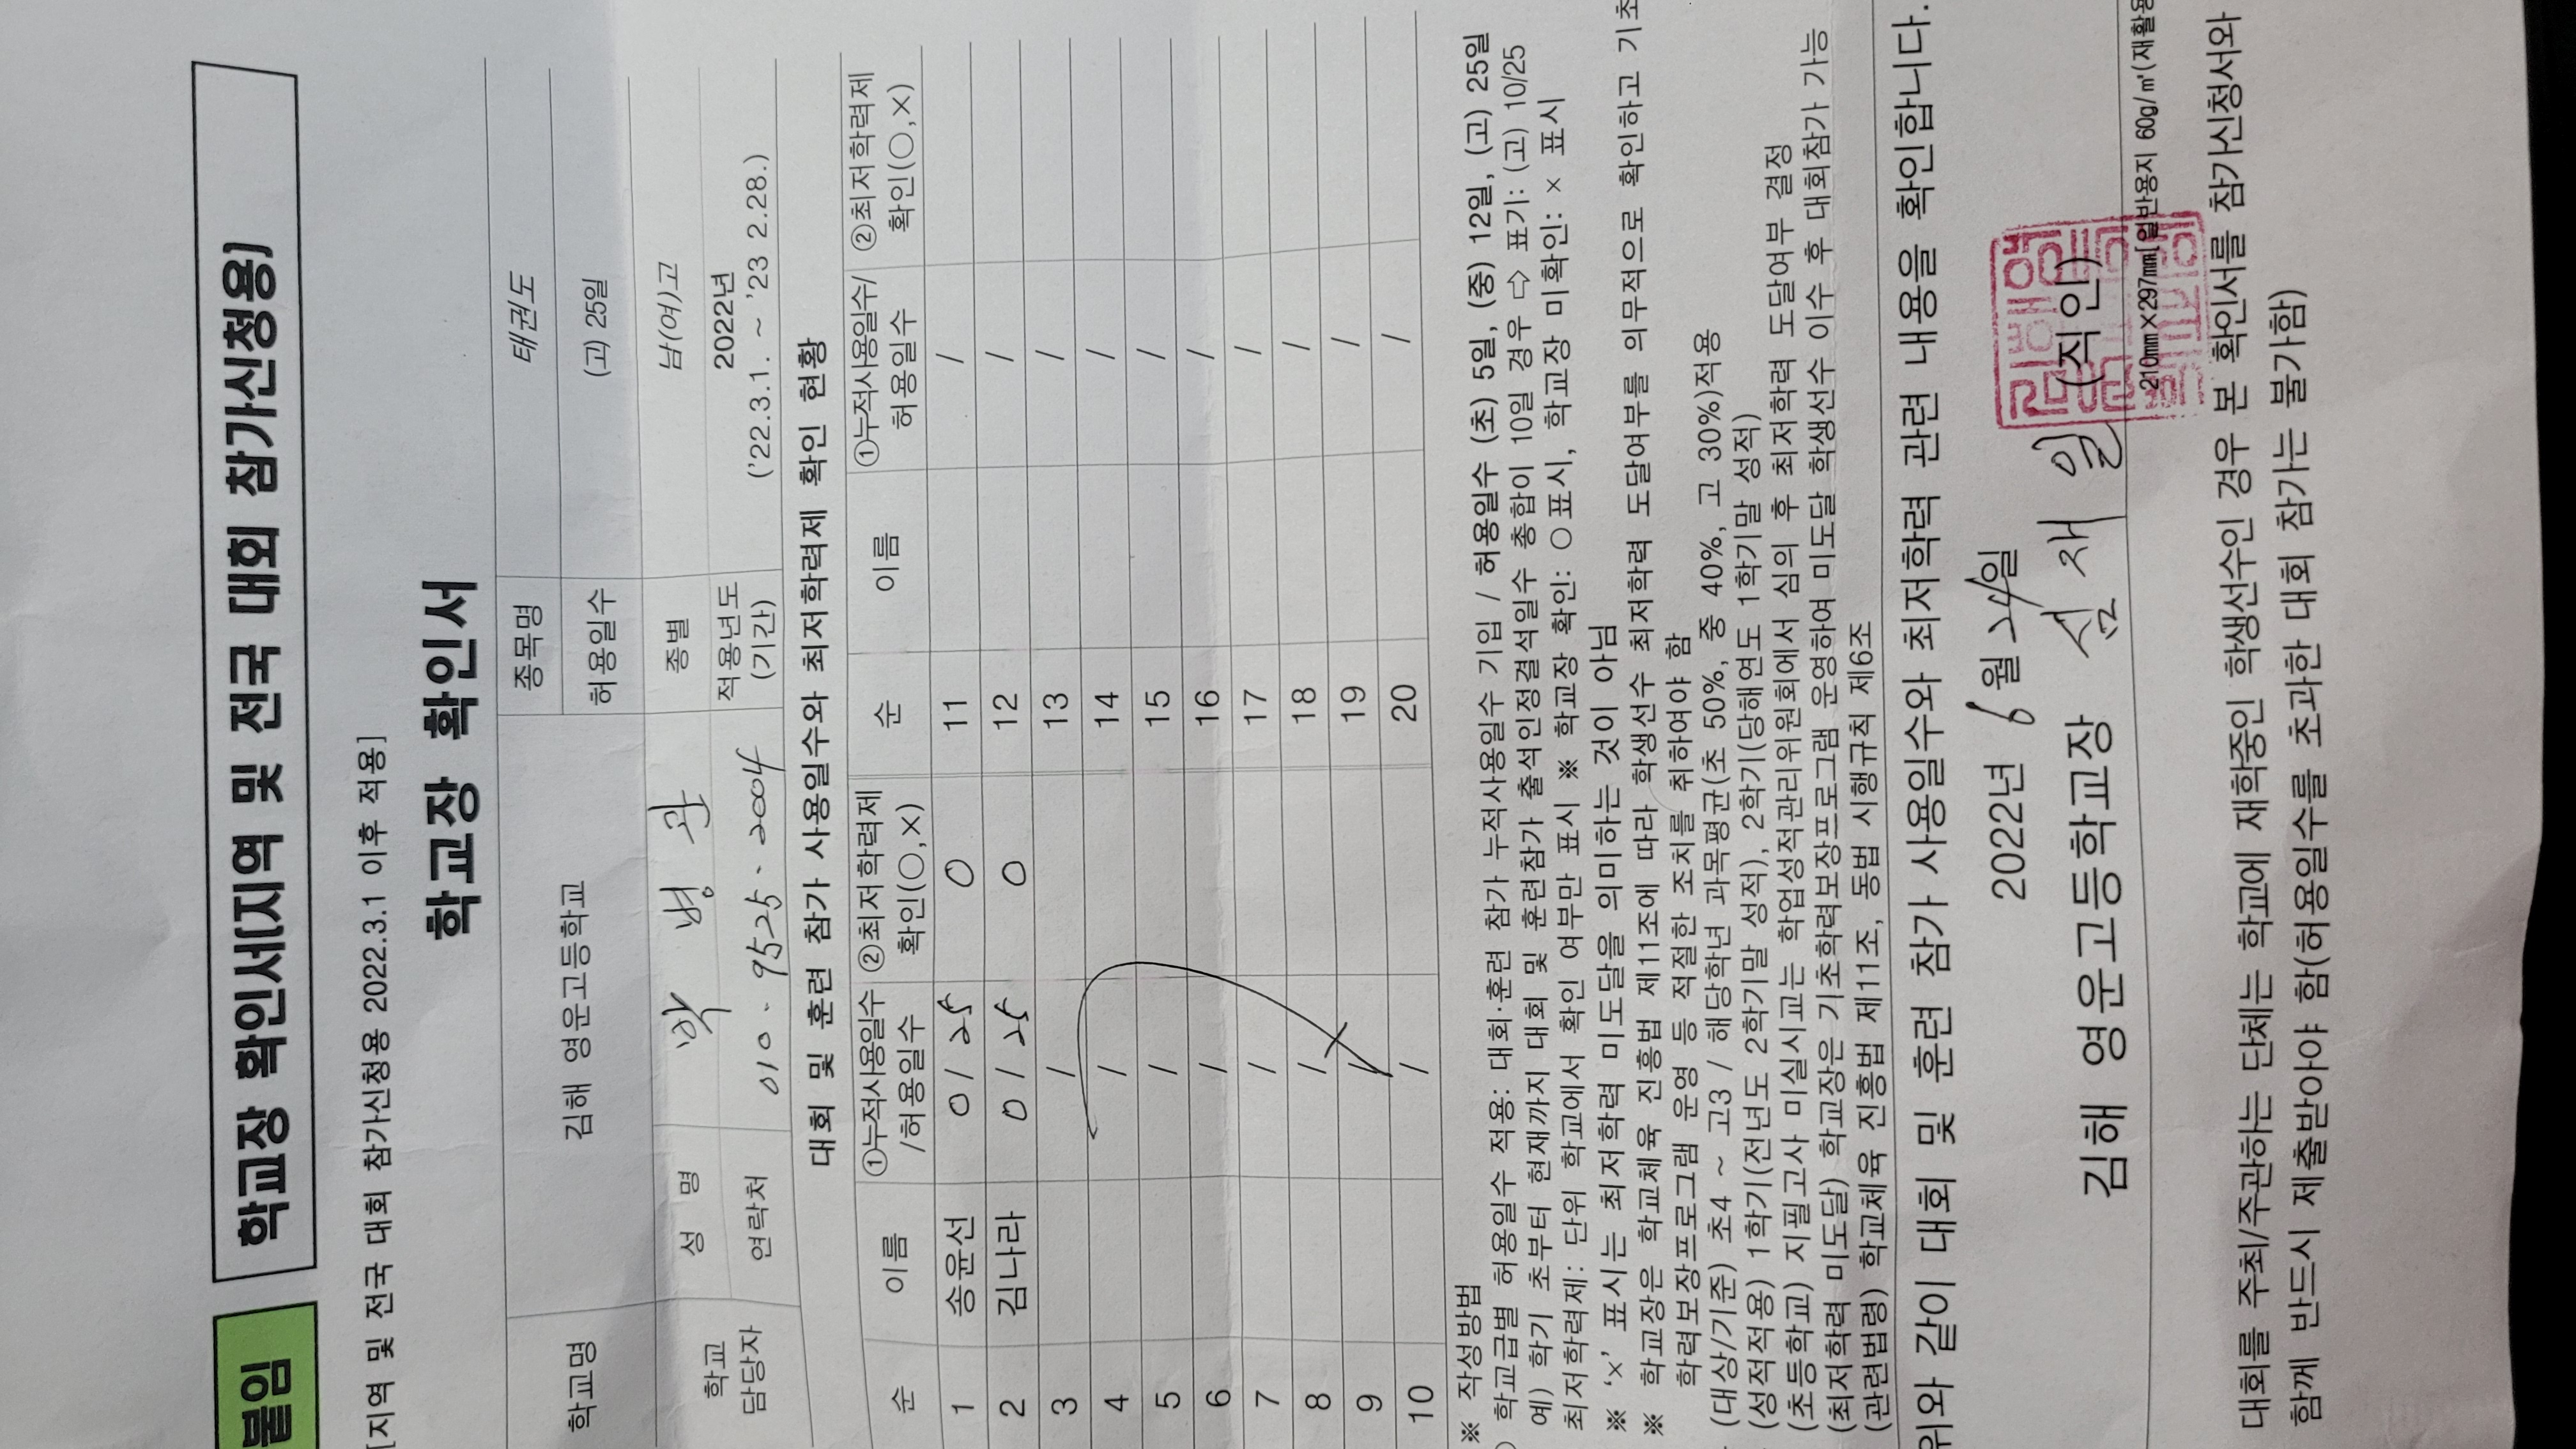 붙임
학교장 확인서[지역 및 전국 대회 참가신청용]
[지역 및 전국 대회 참가신청용 2022.3.1 이후 적용]
학교장 확인서
학교명 김해 영운고등학교 종목명 태권도
허용일수 (고) 25일
학교 담당자 성 명 박 병 관 종별 남(여)고
연락처 010 - 9525 - 2004 적용년도 (기간) 2022년 ('22.3.1. ~ '23 2.28.)
대회 및 훈련 참가 사용일수와 최저학력제 확인 현황
순 이름 ①누적사용일수/허용일수 ②최저학력제 확인(○,×) 순 이름 ①누적사용일수/허용일수 ②최저학력제 확인(○,×)
1 송윤선 0 / 25 0 11 /
2 김나라 0 / 25 0 12 /
3 / 13 /
4 / 14 /
5 / 15 /
6 / 16 /
7 / 17 /
8 / 18 /
9 / 19 /
10 / 20 /
※ 작성방법
학교급별 허용일수 적용: 대회·훈련 참가 누적사용일수 기입 / 허용일수 (초) 5일, (중) 12일, (고) 25일
예) 학기 초부터 현재까지 대회 및 훈련참가 출석인정결석일수 총합이 10일 경우 ⇨ 표기: (고) 10/25
최저학력제: 단위 학교에서 확인 여부만 표시 ※ 학교장 확인: ○표시, 학교장 미확인: × 표시
※ '×' 표시는 최저학력 미도달을 의미하는 것이 아님
※ 학교장은 학교체육 진흥법 제11조에 따라 학생선수 최저학력 도달여부를 의무적으로 확인하고 기초
학력보장프로그램 운영 등 적절한 조치를 취하여야 함
(대상/기준) 초4 ~ 고3 / 해당학년 과목평균(초 50%, 중 40%, 고 30%)적용
(성적적용) 1학기(전년도 2학기말 성적), 2학기(당해연도 1학기말 성적)
(초등학교) 지필고사 미실시교는 학업성적관리위원회에서 심의 후 최저학력 도달여부 결정
(최저학력 미도달) 학교장은 기초학력보장프로그램 운영하여 미도달 학생선수 이수 후 대회참가 가능
(관련법령) 학교체육 진흥법 제11조, 동법 시행규칙 제6조
위와 같이 대회 및 훈련 참가 사용일수와 최저학력 관련 내용을 확인합니다.
2022년 6월 24일
김해 영운고등학교장 심 재 일 (직인)
210mm×297mm[일반용지 60g/㎡(재활용
대회를 주최/주관하는 단체는 학교에 재학중인 학생선수인 경우 본 확인서를 참가신청서와
함께 반드시 제출받아야 함(허용일수를 초과한 대회 참가는 불가함)